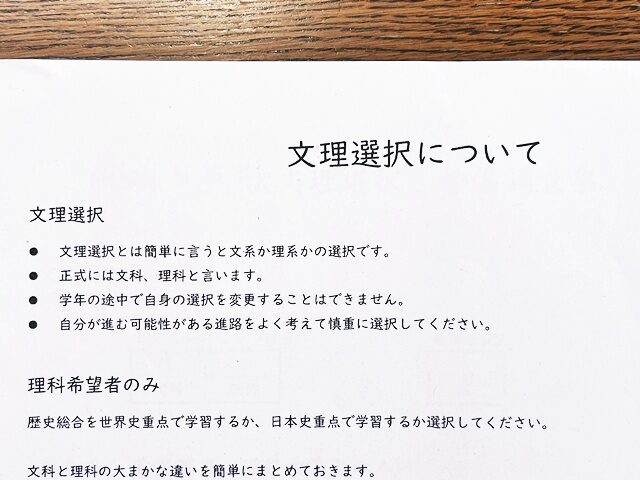 文理選択について
文理選択
● 文理選択とは簡単に言うと文系か理系かの選択です。
● 正式には文科、理科と言います。
● 学年の途中で自身の選択を変更することはできません。
● 自分が進む可能性がある進路をよく考えて慎重に選択してください。
理科希望者のみ
歴史総合を世界史重点で学習するか、日本史重点で学習するか選択してください。
文科と理科の大まかな違いを簡単にまとめておきます。